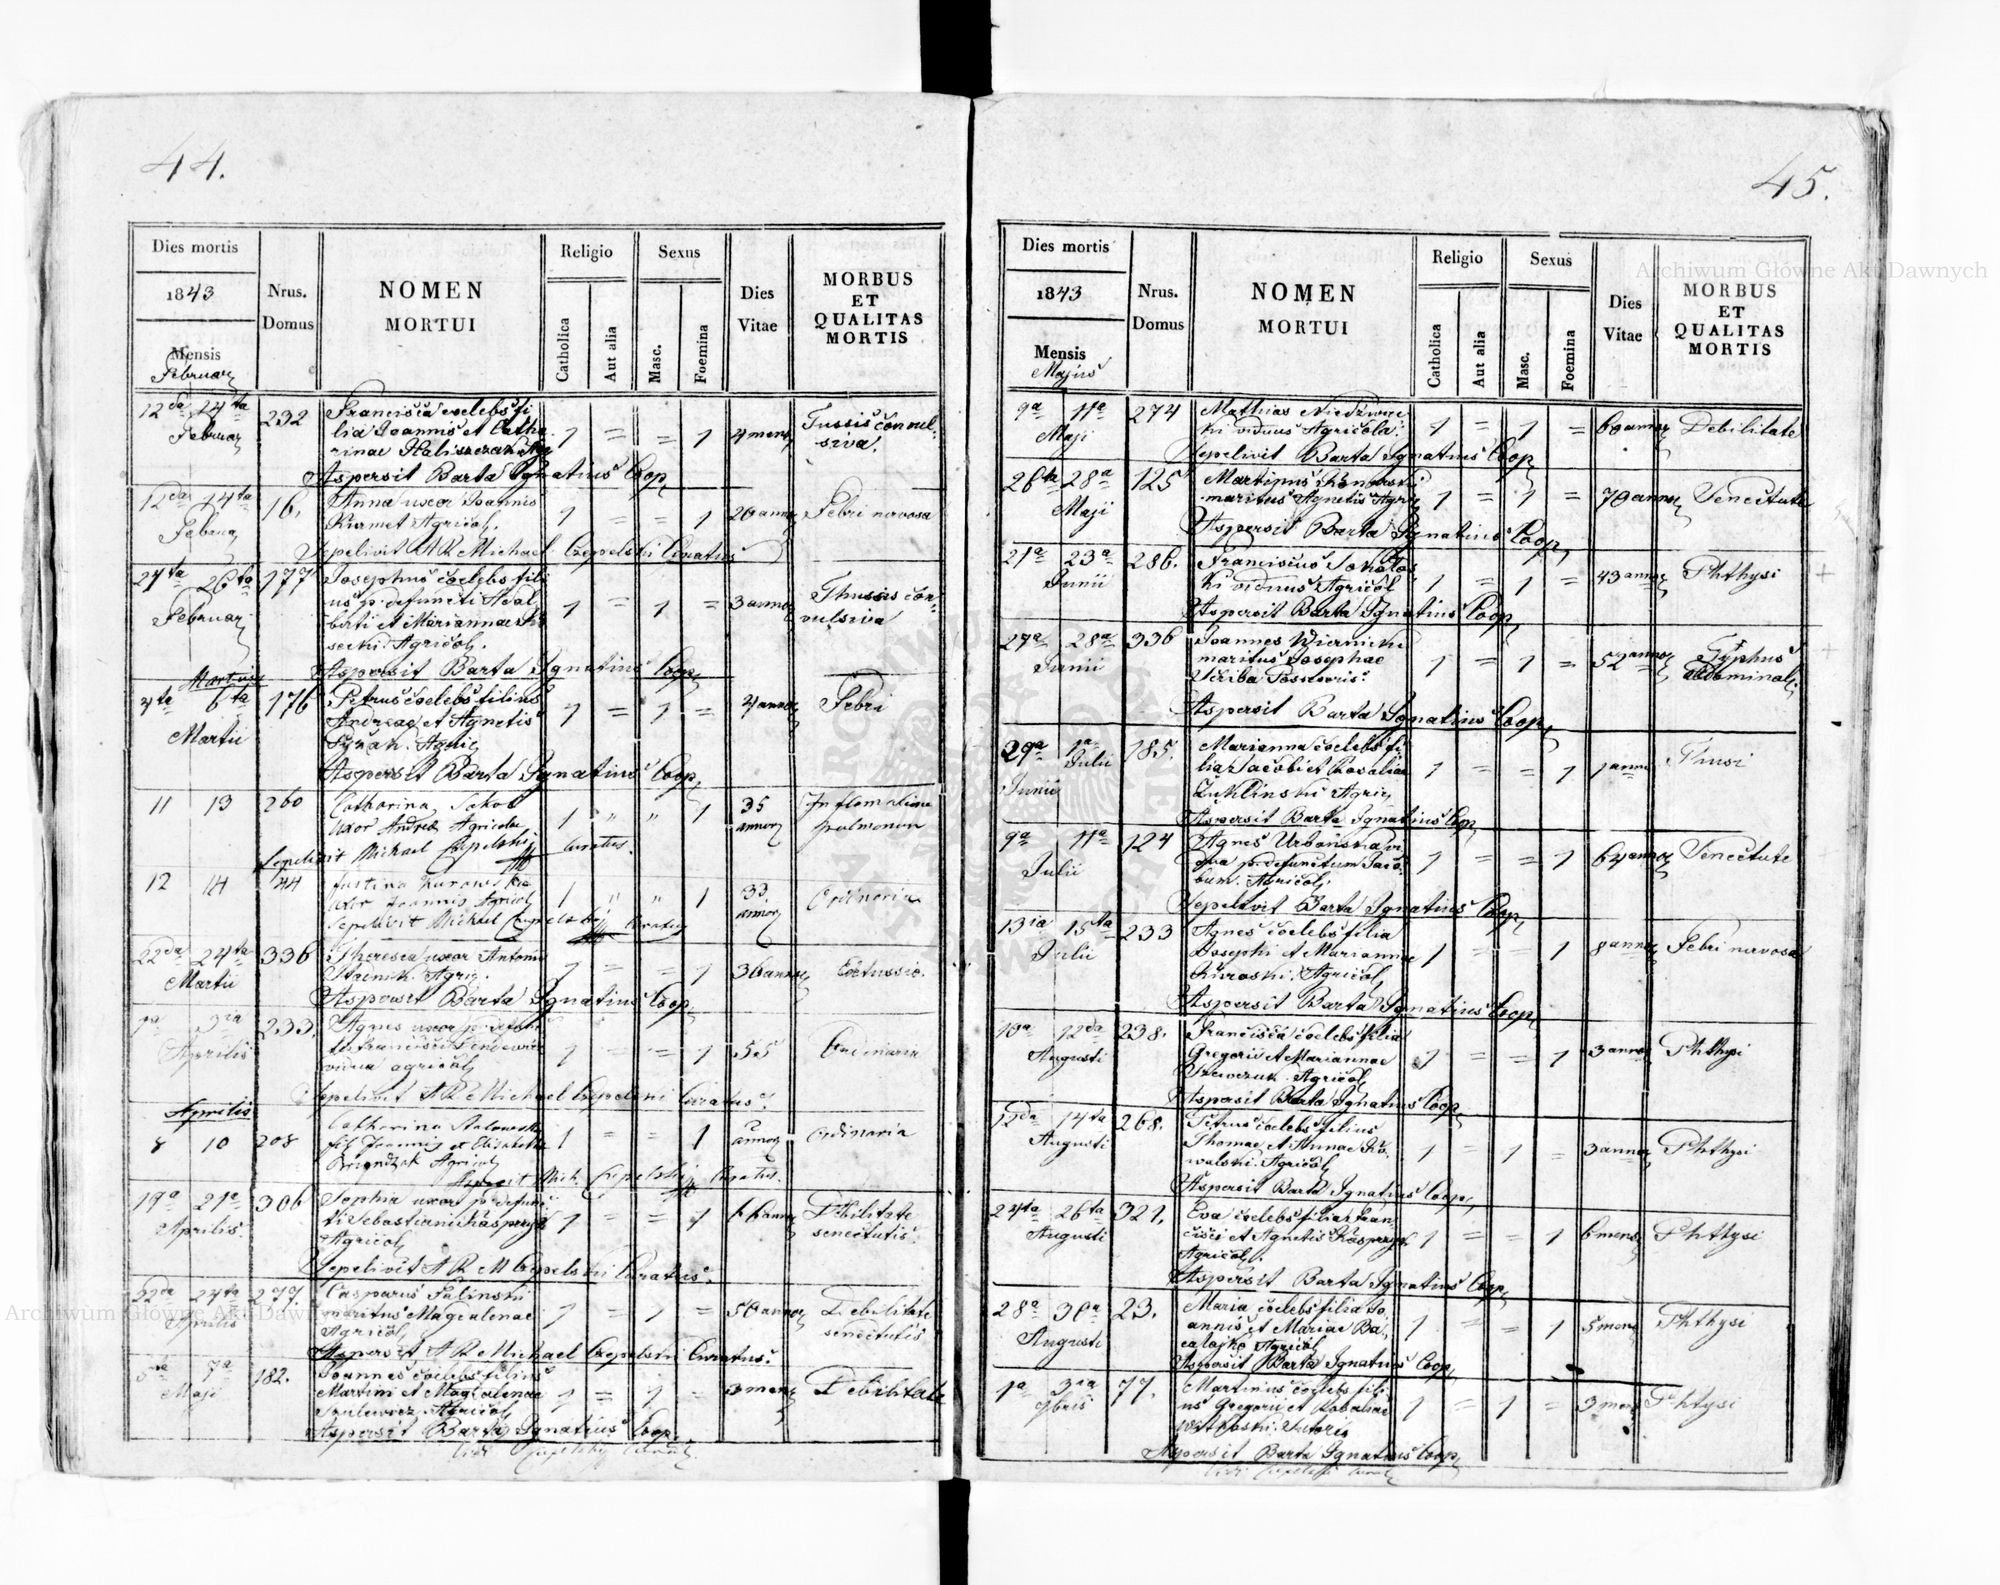 44.
Dies mortis
1843
Mensis
Februar
Nrus.
Domus
NOMEN
MORTUI
Religio
Catholica
Aut alia
Sexus
Masc.
Foemina
Dies
Vitae
MORBUS
ET
QUALITAS
MORTIS
12da 14ta 232 Francisca coelebs fi
Februar lia Joannis et Catha 1 = = 1 4 mens Tussis convul-
rinae siva.
Aspersit Barta Ignatius Coop
12da 14ta 16. Anna uxor Joannis 1 = = 1 20 annor Febri nervosa
Kurmet Agricol.
Sepelivit A R Michael Czepelski Curatus
24ta 26ta 177 Josephus coelebs fili
Februar us p. defuncti Adal 1 = 1 = 3 annor Thussis con-
berti et Mariannae vulsiva
secki Agricol.
Aspersit Barta Ignatius Coop
Martius
4ta 6ta 176 Petrus coelebs filius
Martii Andreae et Agnetis 1 = 1 = 4 annor Febri
Agric
Aspersit Barta Ignatius Coop,
11 13 260 Catharina Sakob 35 Inflamatione
Uxor Andreae Agricolae 1 " " 1 annor pulmonum
Sepelivit Michael Czepelskij Curatus.
12 14 44 Justina Zurowska 33
uxor Joannis Agricol 1 " " 1 annor Ordinaria
Sepelivit Michael Czepelskij Curatus
22da 24ta 336 Theresia uxor Antonii
Martii Agric. 1 = = 1 36 annor
Aspersit Barta Ignatius Coop
1a 3ia 233. Agnes uxor p. defunc
Aprilis ti Francisci 1 = = 1 55 Ordinaria
vidua agricol
Sepelivit A R Michael Czepelski Curatus.
Aprilis
8 10 208 Catharina
fil Joannis et Elisabethae 1 = = 1 annor Ordinaria
Agricol
Aspersit Mich. Czepelskij Curatus.
19a 21a 306 Sophia uxor p. defunc
Aprilis. ti Sebastiani Kasperyk 1 = = 1 66 annor Debilitate
Agricol senectutis.
Sepelivit A R M Czepelski Curatus.
22da 24ta 277. Casparus Salinski
Aprilis maritus Magdalenae 1 = 1 = 50 annor Debilitate
Agricol, senectutis
Aspersit A R Michael Czepelski Curatus.
5ta 7a 182. Joannes coelebs filius
Maji Martini et Magdalenae 1 = 1 = 3 mens Debilitate
Agricol
Aspersit Barta Ignatius Coop.
45.
Dies mortis
1843
Mensis
Majus
Nrus.
Domus
NOMEN
MORTUI
Religio
Catholica
Aut alia
Sexus
Masc.
Foemina
Dies
Vitae
MORBUS
ET
QUALITAS
MORTIS
9a 11a 274 Mathias Niedzwiec
Maji ki viduus Agricola. 1 = 1 = 60 annor Debilitate
Sepelivit Barta Ignatius Coop
26ta 28a 125 Martinus
Maji maritus Agnetis Agric 1 = 1 = 70 annor Senectute
Aspersit Barta Ignatius Coop,
21a 23a 286. Franciscus Sokolos
Junii ki viduus Agricol 1 = 1 = 43 annor Phthysi
Aspersit Barta Ignatius Coop
27a 28a 336 Joannes Wiernicki
Junii maritus Josephae 1 = 1 = 52 annor Typhus
Scriba abdominal.
Aspersit Barta Ignatius Coop,
29a 1a 185. Marianna coelebs fi-
Junii Julii lia Jacobi et Rosaliae 1 = = 1 1 anni Thusi
Agric
Aspersit Barta Ignatius Coop
9a 11a 124 Agnes Urbanska vi
Julii dua p. defunctum Jaco- 1 = = 1 64 annor Senectute
bum. Agricol.
Sepelivit Barta Ignatius Coop,
13ia 15ta 233 Agnes coelebs filia
Julii Josephi et Mariannae 1 = = 1 8 annor Febri nervosa
Zuroski. Agricol,
Aspersit Barta Ignatius Coop
10a 12da 238. Francisca coelebs filia
Augusti Gregorii et Mariannae 1 = = 1 3 annor Phthysi
Szewczuk. Agricol,
Aspersit Barta Ignatius Coop,
12da 14ta 268. Petrus coelebs filius
Augusti Thomae et Annae Ko- 1 = 1 = 3 annor Phthysi
walski. Agricol,
Aspersit Barta Ignatius Coop,
24ta 26ta 321. Eva coelebs filia Fran-
Augusti cisci et Agnetis Kasperyk 1 = = 1 6 mens Phthysi
Agricol.
Aspersit Barta Ignatius Coop,
28a 30a 23. Maria coelebs filia Jo
Augusti annis et Mariae Ba- 1 = = 1 5 mens Phthysi
Agricol
Aspersit Barta Ignatius Coop,
1a 3ia 77. Martinus coelebs fili
7bris us Gregorii et Rosaliae 1 = 1 = 3 mens Phthysi
Sutoris
Aspersit Barta Ignatius Coop,
Archiwum Główne Akt Dawnych
Archiwum Główne Akt Dawnych